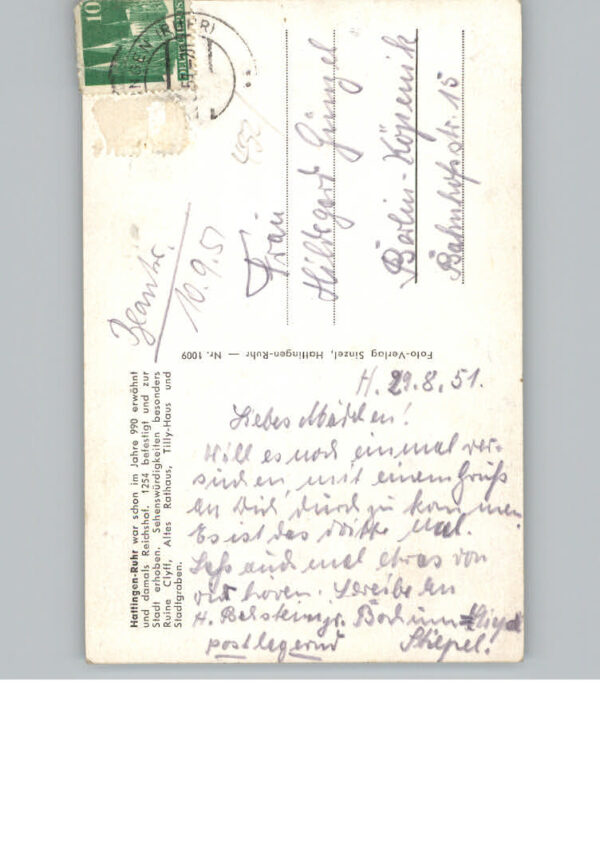 Hattingen-Ruhr war schon im Jahre 990 erwähnt
und damals Reichshof. 1254 befestigt und zur
Stadt erhoben. Sehenswürdigkeiten besonders
Ruine Clyff, Altes Rathaus, Tilly-Haus und
Stadtgraben.
Foto-Verlag Sinzel, Hattingen-Ruhr — Nr. 1009
10
10.9.51
Frau
Hildegard
Berlin-Köpenik
Bahnhofstr. 15
H. 29.8.51.
Liebes Mädchen!
Will es noch einmal ver-
suchen, mit einem Gruß
an Dich durch zu kommen.
Es ist das dritte Mal.
Laß auch mal etwas von
Dir hören. Schreibe an
H. Bochum-
postlagernd Stiepel!